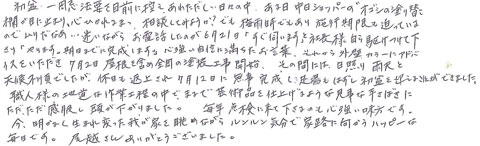 初盆、一周忌法要を目前に控え、あわただしい日々の中、ある日中日ショッパーのオズシンの塗り替え
欄が目に止まり心ひかれます。相談してみようか?でも梅雨時でもあり施行期限も迫っている
のでムリだなぁ…迷いながらお電話したのが6月21日「すぐ伺います」と社長様自ら駆けつけて下
さり「やります。期日までに完成します」と心強い自信に満ちたお言葉。それから外壁カラーアドバ
イスをいただき7月2日屋根を含め全面の塗装工事開始。その間には日照り、雨天と
天候不順でしたが、休日も返上され7月12日に見事完成し足場もはずし初盆を迎える事ができました。
職人様の仕事は作業工程の中で、まるで芸術品を仕上げるような見事な手さばきに
ただただ感服し頭が下がりました。毎年点検に来て下さるのも心強い味方です。
今、明かるく生まれ変った我が家を眺めながらルンルン気分で家路に向かうハッピーな
毎日です。 屋越さんありがとうございました。